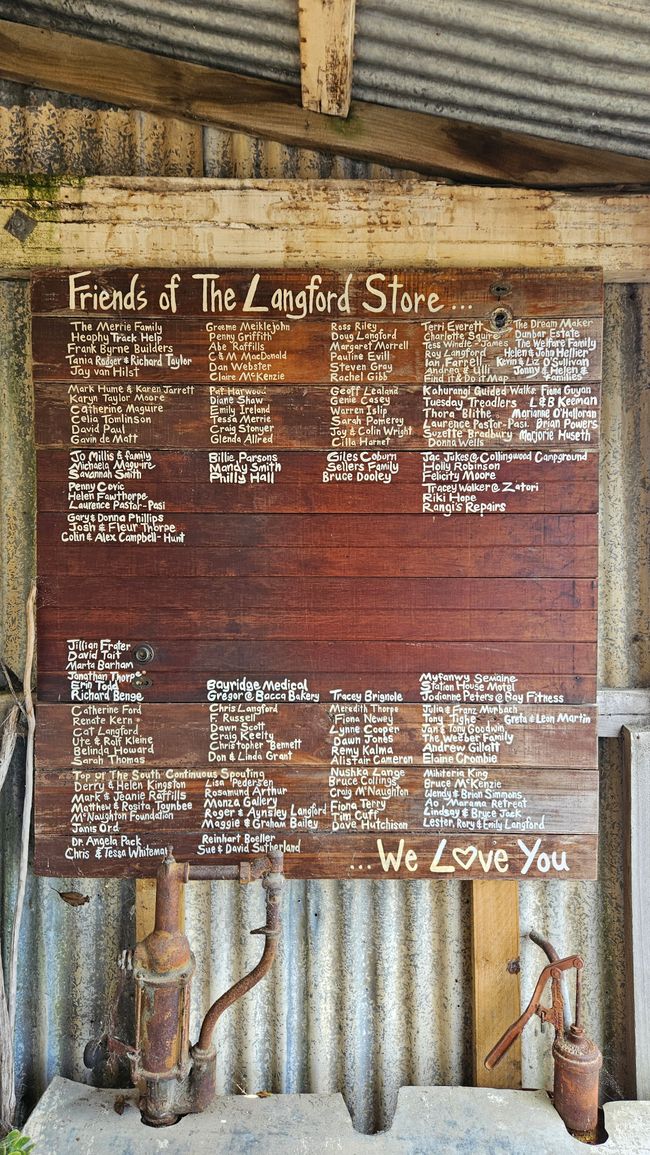 Friends of The Langford Store ...
The Merrie Family
Heaphy Track Help
Frank Byrne Builders
Tania Rodger & Richard Taylor
Jay van Hilst
Graeme Meiklejohn
Penny Griffith
Abe Raffills
C & M MacDonald
Dan Webster
Claire McKenzie
Ross Riley
Doug Langford
Margaret Morrell
Pauline Evill
Steven Gray
Rachel Gibb
Terri Everett
Charlotte Squire
Tess Windle-James
Roy Langford
Ian Farrell
Andrea & Lilli
Find it & Do it Map
The Dream Maker
Dunbar Estate
The Welfare Family
Helen & John Hellier
Kevin & Liz O'Sullivan
Jonny & Helen &
Families
Mark Hume & Karen Jarrett
Karyn Taylor Moore
Catherine Maguire
Celia Tomlinson
David Paul
Gavin de Matt
Pat Harwood
Diane Shaw
Emily Ireland
Tessa Merrie
Craig Stonyer
Glenda Allred
Geoff Lealand
Genie Casey
Warren Islip
Sarah Pomeroy
Joy & Colin Wright
Cilla Harnet
Kahurangi Guided Walks Fiona Guyan
Tuesday Treadlers L & B Keeman
Thora Blithe Marianne O'Halloran
Laurence Pastor-Pasi. Brian Powers
Suzette Bradbury Marjorie Huseth
Donna Wells
Jo Millis & family
Michaela Maguire
Savannah Smith
Penny Covic
Helen Fawthorpe
Laurence Pastor-Pasi
Gary & Donna Phillips
Josh & Fleur Thorpe
Colin & Alex Campbell-Hunt
Billie Parsons
Mandy Smith
Philly Hall
Giles Coburn
Sellers Family
Bruce Dooley
Jac Jakes @ Collingwood Campground
Holly Robinson
Felicity Moore
Tracey Walker @ Zatori
Riki Hope
Rangi's Repairs
Jillian Frater
David Tait
Marta Barham
Jonathan Thorpe
Erin Todd
Richard Benge
Bayridge Medical
Gregor @ Bacca Bakery
Tracey Brignole
Myfanwy Semaine
Station House Motel
Jodianne Peters @ Bay Fitness
Catherine Ford
Renate Kern
Cat Langford
Ute & Rolf Kleine
Belinda Howard
Sarah Thomas
Chris Langford
F. Russell
Dawn Scott
Craig Keelty
Christopher Bennett
Don & Linda Grant
Meredith Thorpe
Fiona Newey
Lynne Cooper
Daun Jones
Remy Kalma
Alistair Cameron
Julia & Franz Mirbach
Tony Tighe Greta & Leon Martin
Jan & Tony Goodwin
The Weeber Family
Andrew Gillatt
Elaine Crombie
Top of The South Continuous Spouting
Derry & Helen Kingston
Mark & Jeanie Raffills
Matthew & Rosita Toynbee
McNaughton Foundation
Janis Ord
Lisa Pedersen
Rosamund Arthur
Monza Gallery
Roger & Aynsley Langford
Maggie & Graham Bailey
Nushka Lange
Bruce Collings
Craig McNaughton
Fiona Terry
Tim Cuff
Dave Hutchison
Mihiteria King
Bruce McKenzie
Wendy & Brian Simmons
Ao, Marama Retreat
Lindsey & Bryce Jack
Lester, Rory & Emily Langford
Dr. Angela Pack
Chris & Tessa Whiteman
Reinhart Boeller
Sue & David Sutherland
...We Love You